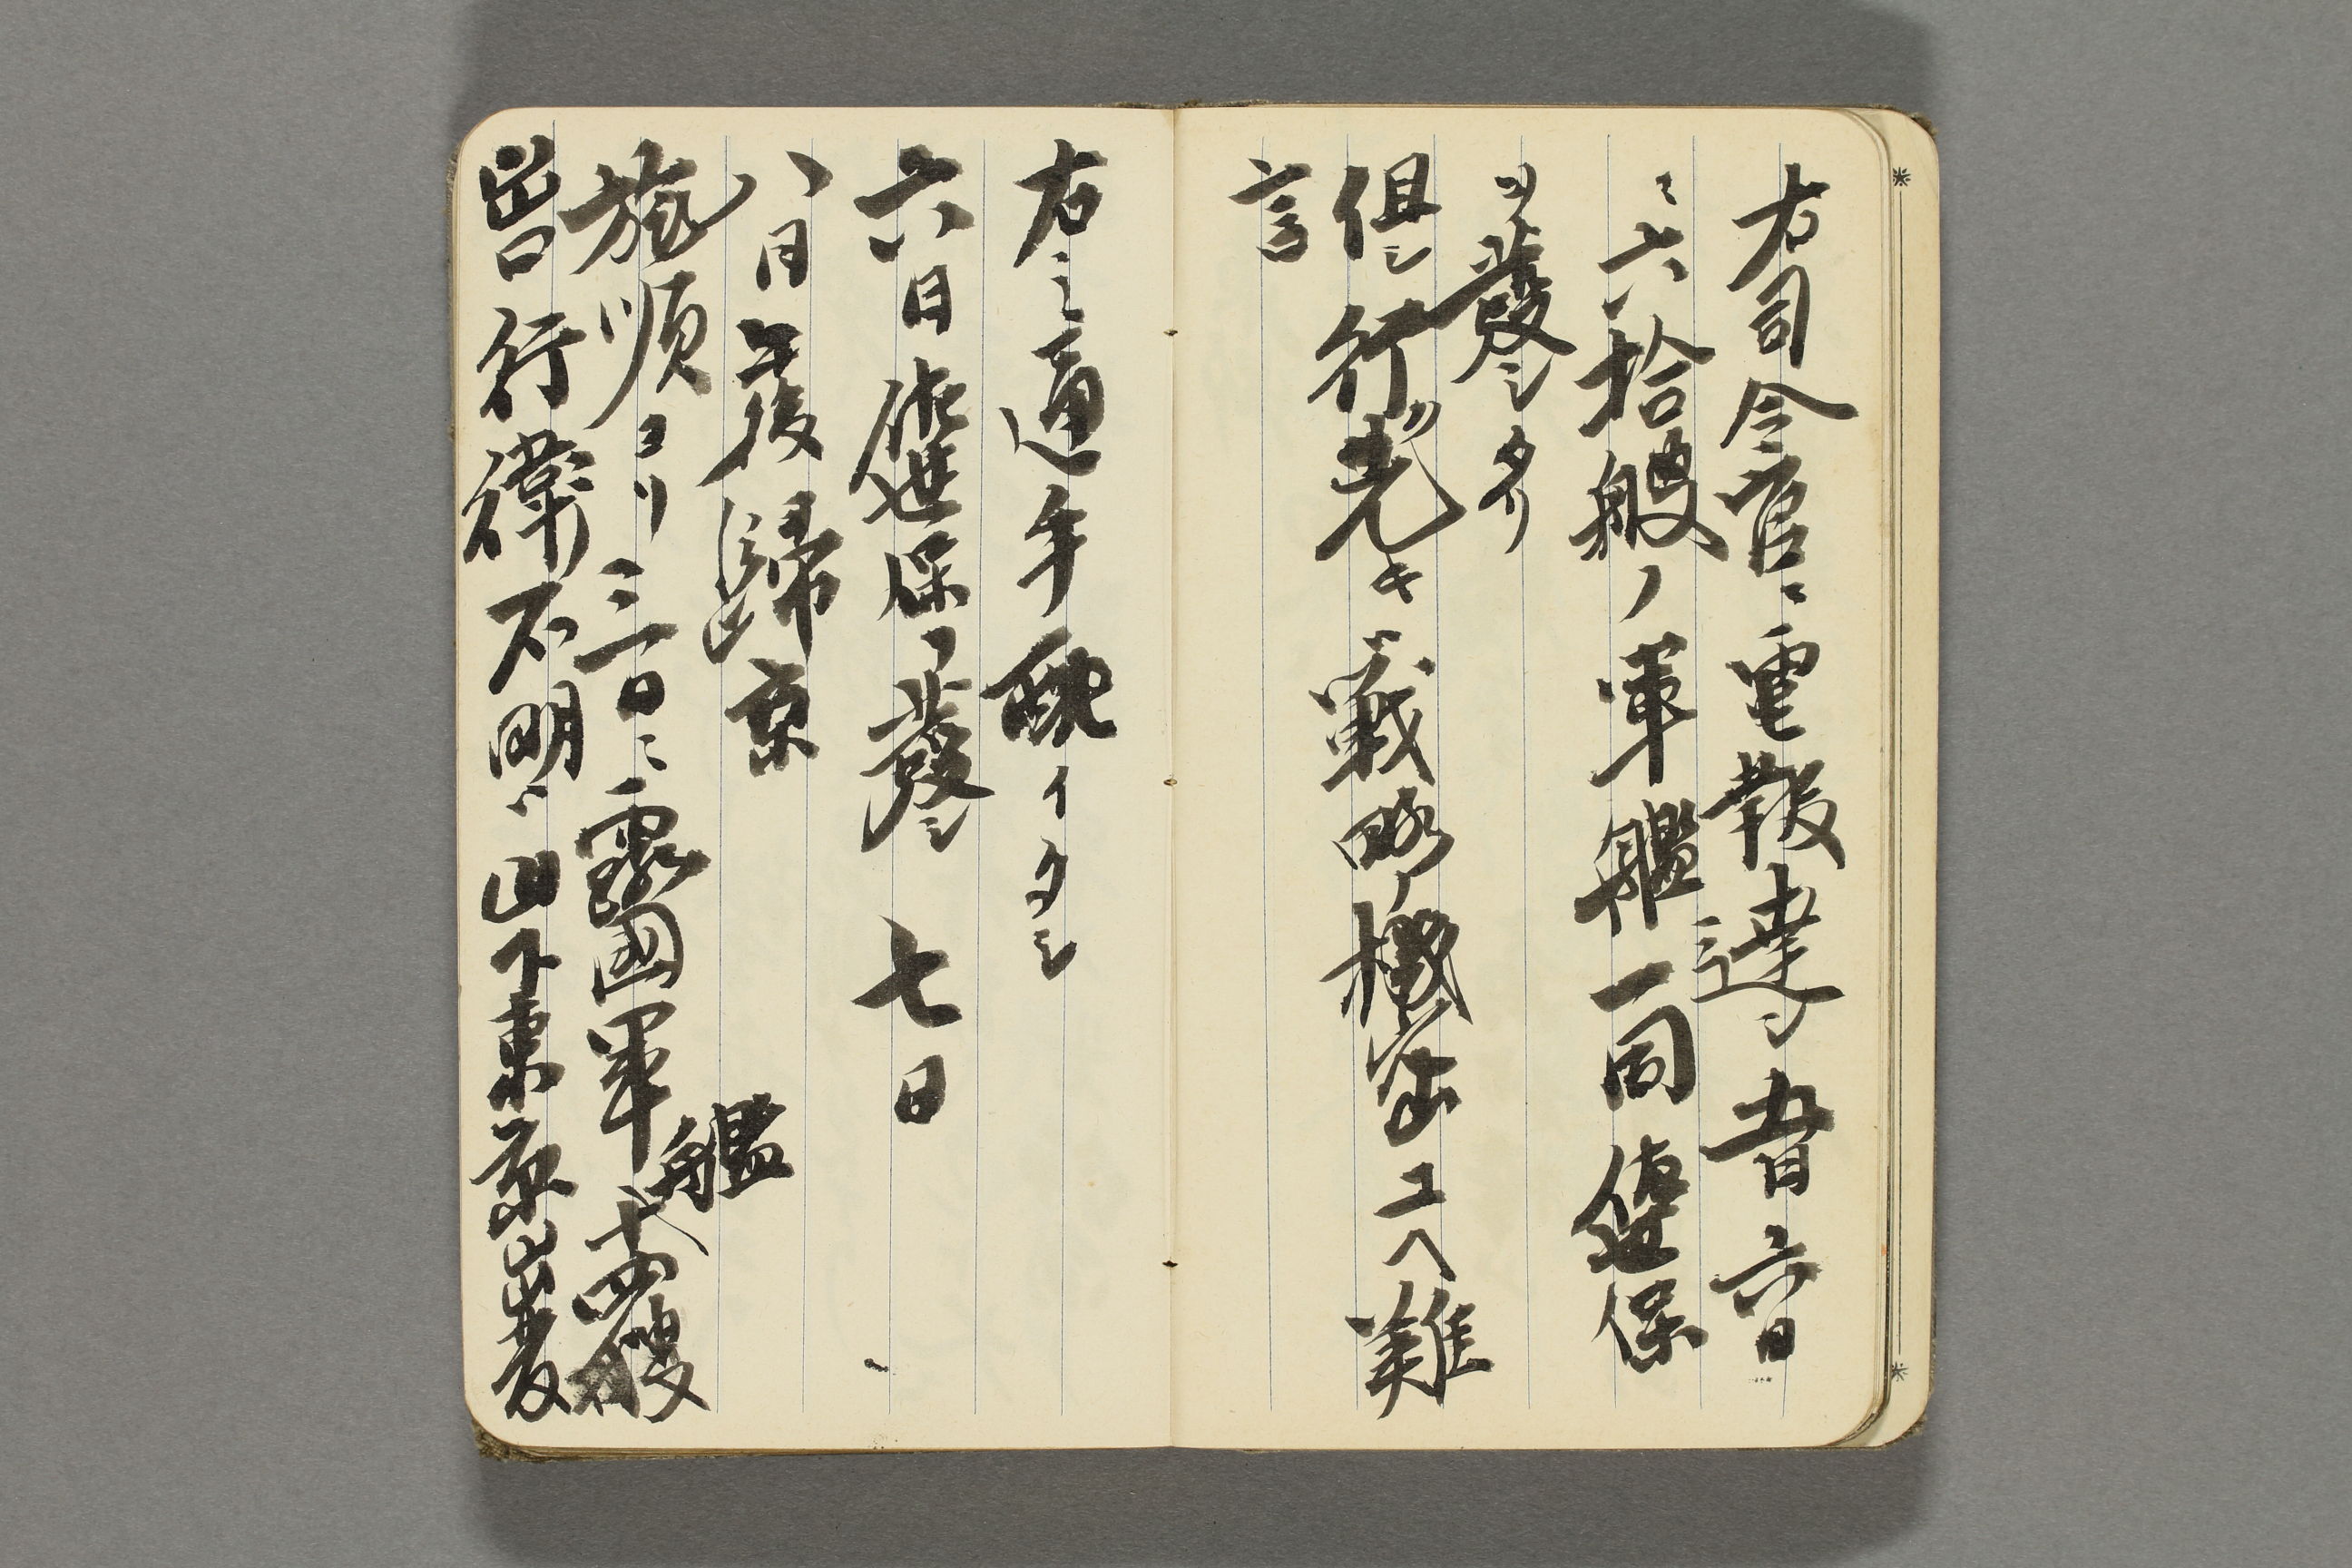 右司令官ニ電報達シ昔六日
ニ六拾艘ノ軍艦一同佐世保
ヲ發シタリ
但シ行先キハ戦略ノ機密ユヘ難
言
右之通手配イタシ
六日佐世保ヲ發シ 七日
八日午後歸京
旅順ヨリ三日ニ露國軍艦十四艘
出口行衛不明ハ山下東京出發